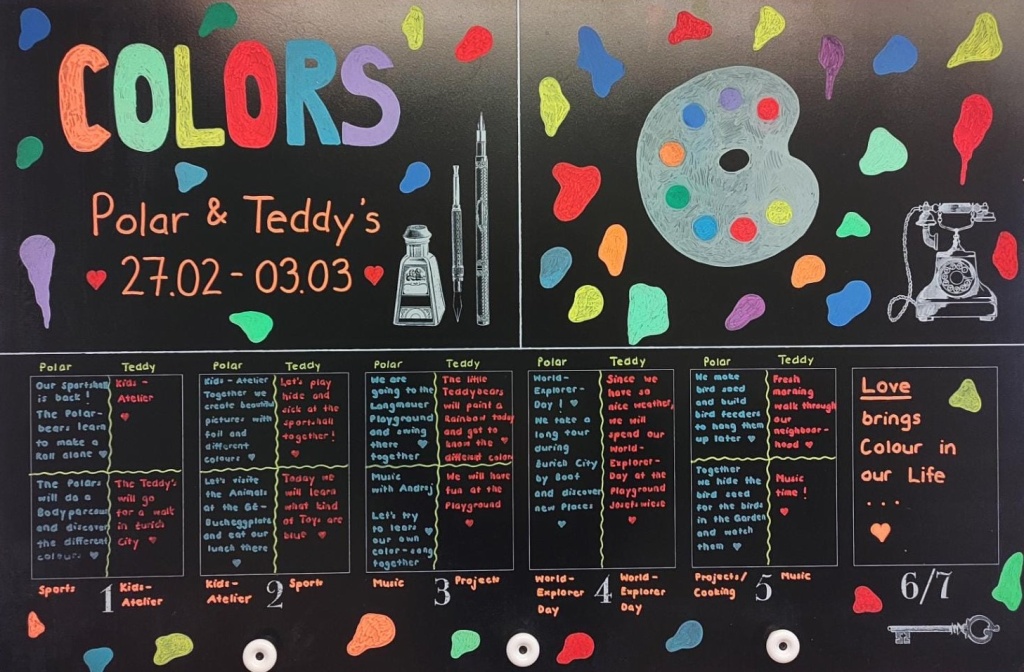 COLORS
Polar & Teddy's
27.02 - 03.03
Polar
Teddy
Our Sportshall
is back!
The Polar-
bears learn
to make a
Roll alone
Kids-
Atelier
The Polars
will do a
Bodyparcour
and discover
the different
colours
The Teddy's
will go
for a walk
in Zurich
City
Sports
1
Kids-
Atelier
Polar
Teddy
Kids-Atelier
Together we
create beautiful
pictures with
foil and
different
colours
Let's play
hide and
sick at the
sportshall
together!
Let's visite
the Animals
at the GZ-
Bucheggplatz
and eat our
lunch there
Today we
will learn
what kind
of Toys are
blue
Kids-
Atelier
2
Sports
Polar
Teddy
We are
going to the
Langmauer
Playground
and swing
there
together
The little
Teddybears
will paint a
Rainbow today
and get to
know the
different colors
Music
with Andrej
Let's try
to learn
our own
color-song
together
We will have
fun at the
Playground
Music
3
Projects
Polar
Teddy
World-
Explorer-
Day!
We take a
long tour
during
Zurich City
by Boat
and discover
new Places
Since we
have so
nice weather,
we will
spend our
World-
Explorer-
Day at the
Playground
Josefswiese
World-
Explorer
Day
4
World-
Explorer
Day
Polar
Teddy
We make
bird seed
and build
bird feeders
to hang them
up later
Fresh
morning
walk through
our
neighbour-
hood
Together
we hide the
bird seed
for the birds
in the Garden
and watch
them
Music
time!
Projects/
Cooking
5
Music
Love
brings
Colour in
our Life
...
6/7